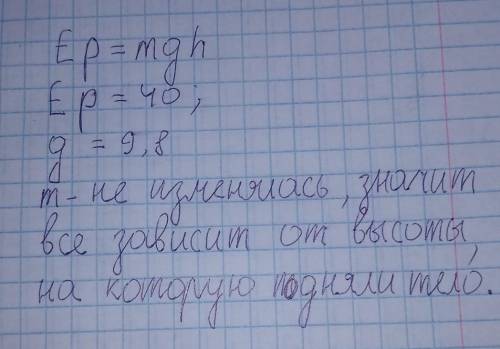 Ep = mgh
Ep = 40;
g = 9,8
m - не изменялась, значит
все зависит от высоты,
на которую подняли тело.